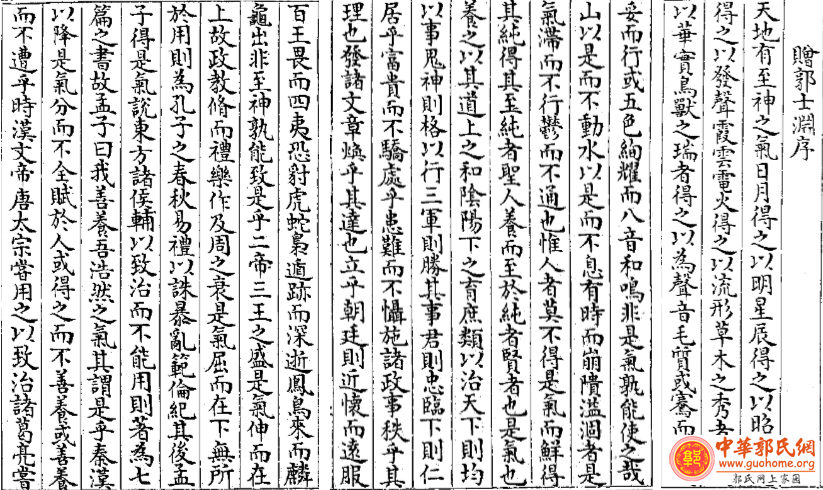 贈郭士淵序
天地有至神之氣日月得之以明星辰得之以昭
得之以發聲霞雲電火得之以流形草木之秀者
以華實鳥獸之瑞者得之以為聲音毛質或騫而
妥而行或五色絢耀而八音和鳴非是氣孰能使之哉
山以是而不動水以是而不息有時而崩隤溢涸者是
氣滯而不行鬱而不通也惟人者莫不得是氣而鮮得
其純得其至純者聖人養而至於純者賢者也是氣也
養之以其道上之和陰陽下之育庶類以治天下則均
以事鬼神則格以行三軍則勝其事君則忠臨下則仁
居乎富貴而不驕處乎患難而不懾施諸政事秩乎其
理也發諸文章煥乎其達也立乎朝廷則近懷而遠服
百王畏而四夷恐豺虎蛇梟遁跡而深逝鳳鳥來而麟
龜出非至神孰能致是乎二帝三王之盛是氣伸而在
上故政教脩而禮樂作及周之衰是氣屈而在下無所
於用則為孔子之春秋易禮以誅暴亂範倫紀其後孟
子得是氣說東方諸侯輔以致治而不能用則著為七
篇之書故孟子曰我善養吾浩然之氣其謂是乎秦漢
以降是氣分而不全賦於人或得之而不善養或善養
而不遭乎時漢文帝唐太宗嘗用之以致治諸葛亮嘗
中華郭氏網
www.guohome.org
郭氏网上家园